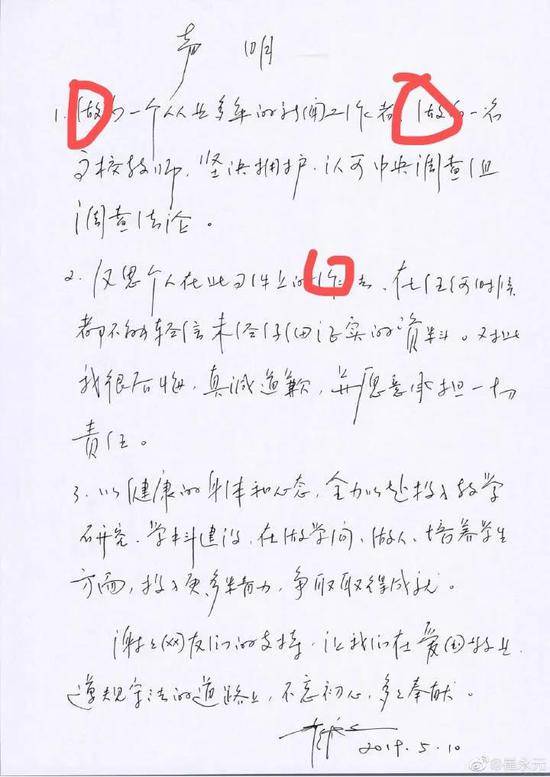 声 明
1. 做为一个从业多年的新闻工作者，做为一名
高校教师，坚决拥护、认可中央调查组
调查结论。
2. 反思个人在此事件上的作为，在任何时候
都不能轻信未经仔细证实的资料。对此
我很后悔，真诚道歉，并愿意承担一切
责任。
3. 以健康的身体和心态，全力以赴投入教学
研究、学科建设，在做学问、做人、培养学生
方面，投入更多精力，争取取得成就。
谢谢网友们的支持，让我们在爱国敬业、
遵规守法的道路上，不忘初心，多多奉献。
2019.5.10
@崔永元